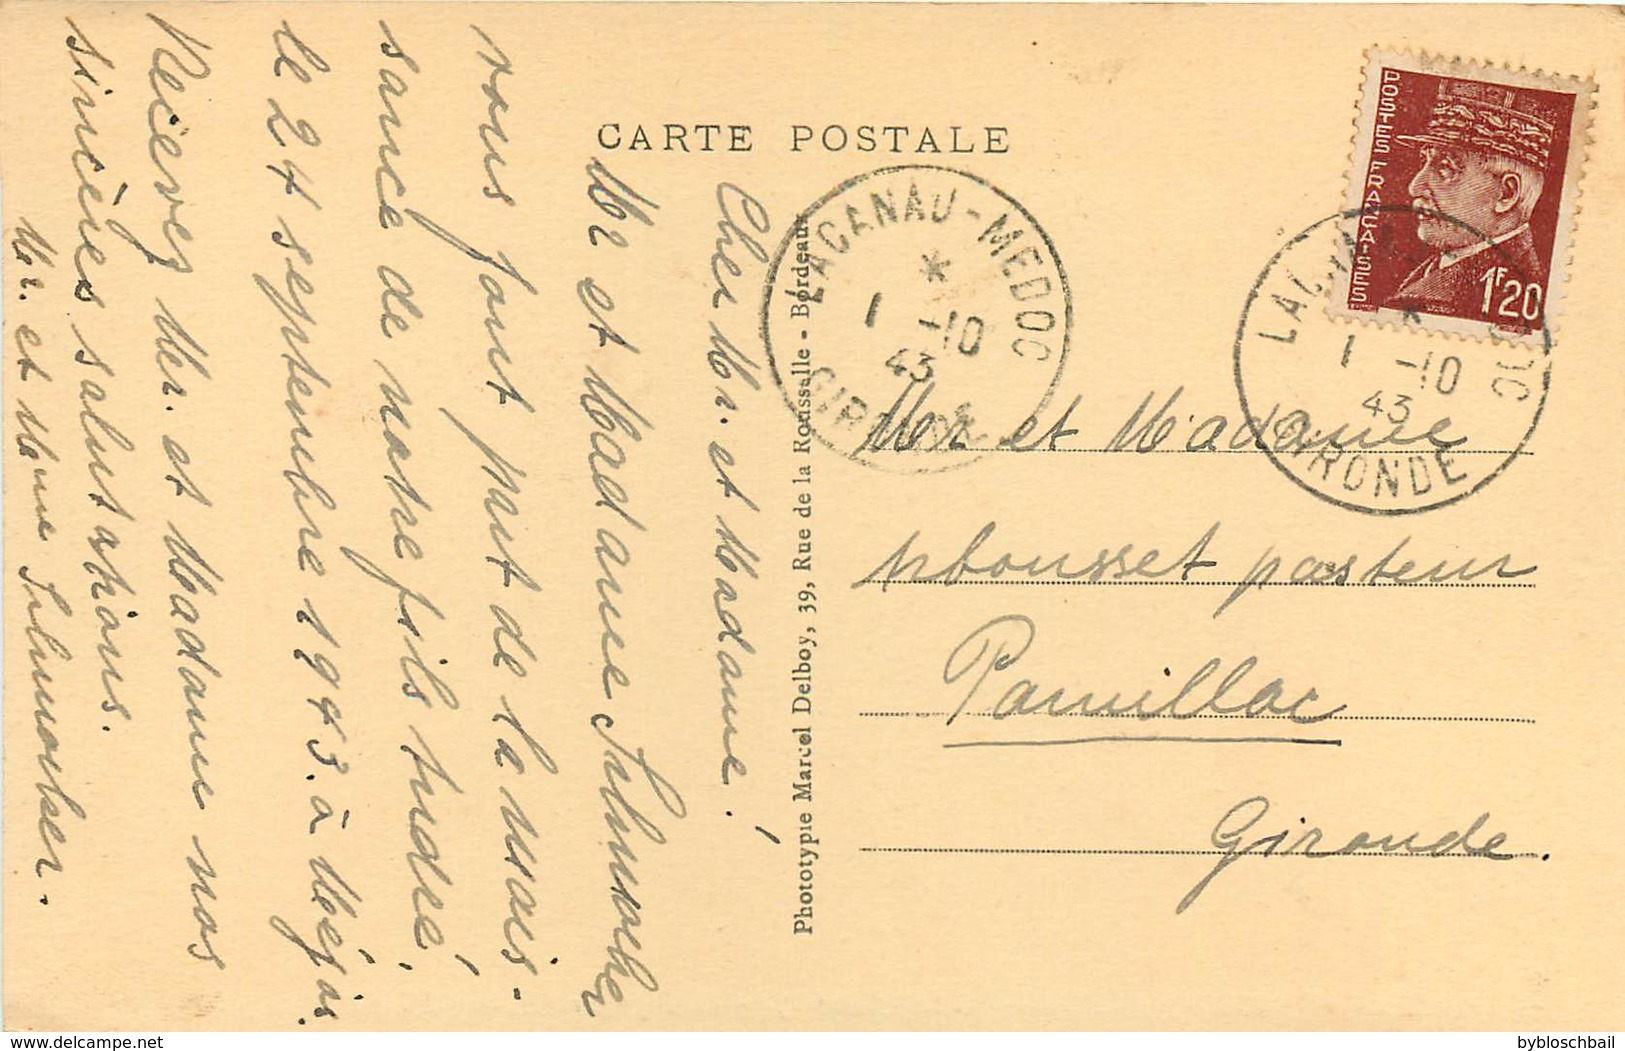 CARTE POSTALE
Cher Mr. et Madame!
Mr et Madame
vous font part de la nais-
sance de notre fils André.
le 24 septembre 1943. à Méjos.
Recevez Mr. et Madame nos
sincères salutations.
Mr. et Mme
Phototypie Marcel Delboy, 39, Rue de la Rousselle - Bordeaux
LACANAU-MEDOC
*
1 -10
43
GIRONDE
POSTES FRANÇAISES
1F20
LACANAU-MEDOC
*
1 -10
43
GIRONDE
Mr et Madame
Arbousset pasteur
Pauillac
Gironde.
delcampe.net
bybloschbail